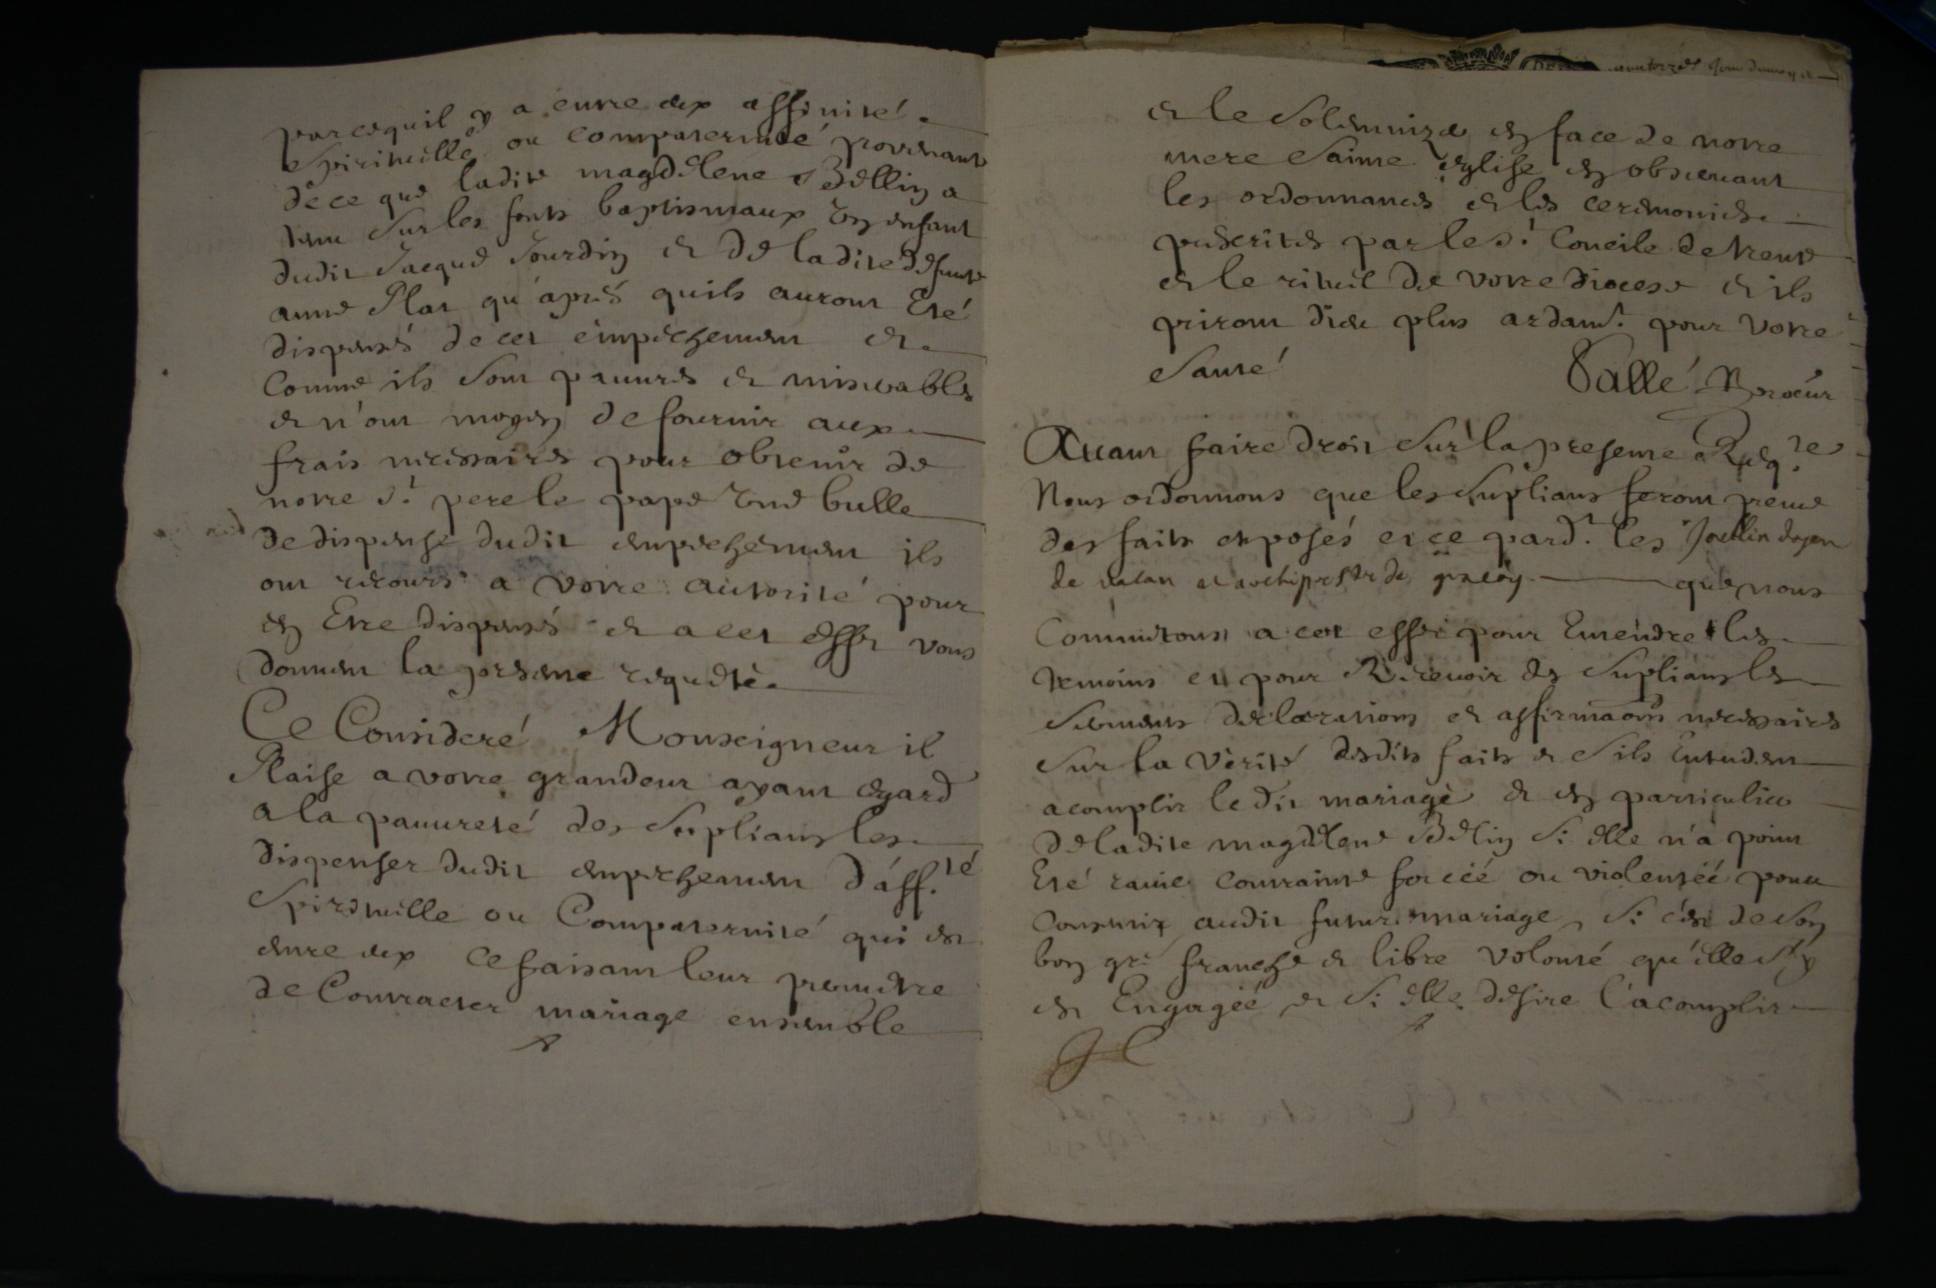 parcequil y a entre eux affinité
spirituelle ou compaternité provenant
de ce que ladite magdelene Bellin a
tenu sur les fonts baptismaux un enfant
dudit Jacque Jourdin et de ladite defunte
anne Plat qu'après quils auront Eté
dispensés de cet empechement et
Comme ils sont pauures et miserables
et n'ont moyen de fournir aux
frais necessaires pour obtenir de
notre st pere le pape une bulle
de dispense dudit empechement ils
ont recours a votre autorité pour
en Etre dispensés et a cet effet vous
donnent la presente requete.
Ce Consideré Monseigneur il
Plaise a votre grandeur ayant egard
a la pauureté des suplians les
dispenser dudit empechement d'aff.té
spirituelle ou Compaternité qui est
entre eux ce faisant leur permettre
de Contracter mariage ensemble
et le solemnizer en face de notre
mere sainte eglise en obseruant
les ordonnances et les ceremonies
prescrites par le st Concile de trente
et le rituel de votre diocese et ils
priront dieu plus ardamt pour votre
santé
Vallé Procur
Auant faire droit sur la presente Req.te
Nous ordonnons que les suplians feront preuue
des faits exposés et ce pard.t les Joullin doyen
de et archiprestre de que nous
Commettons a cet effet pour Entendre les
temoins et pour Receuoir des suplians les
sermens declarations et affirmaons necessaires
sur la verité desdits faits et s'ils Entendent
acomplir le dit mariage et en particulier
de ladite magdelene Belin si elle n'a point
Eté rauie contrainte forcéé ou violentéé pour
consentir audit futur mariage si c'est de son
bon gré franche et libre volonté qu'elle s'y
est Engagéé et si elle desire l'acomplir